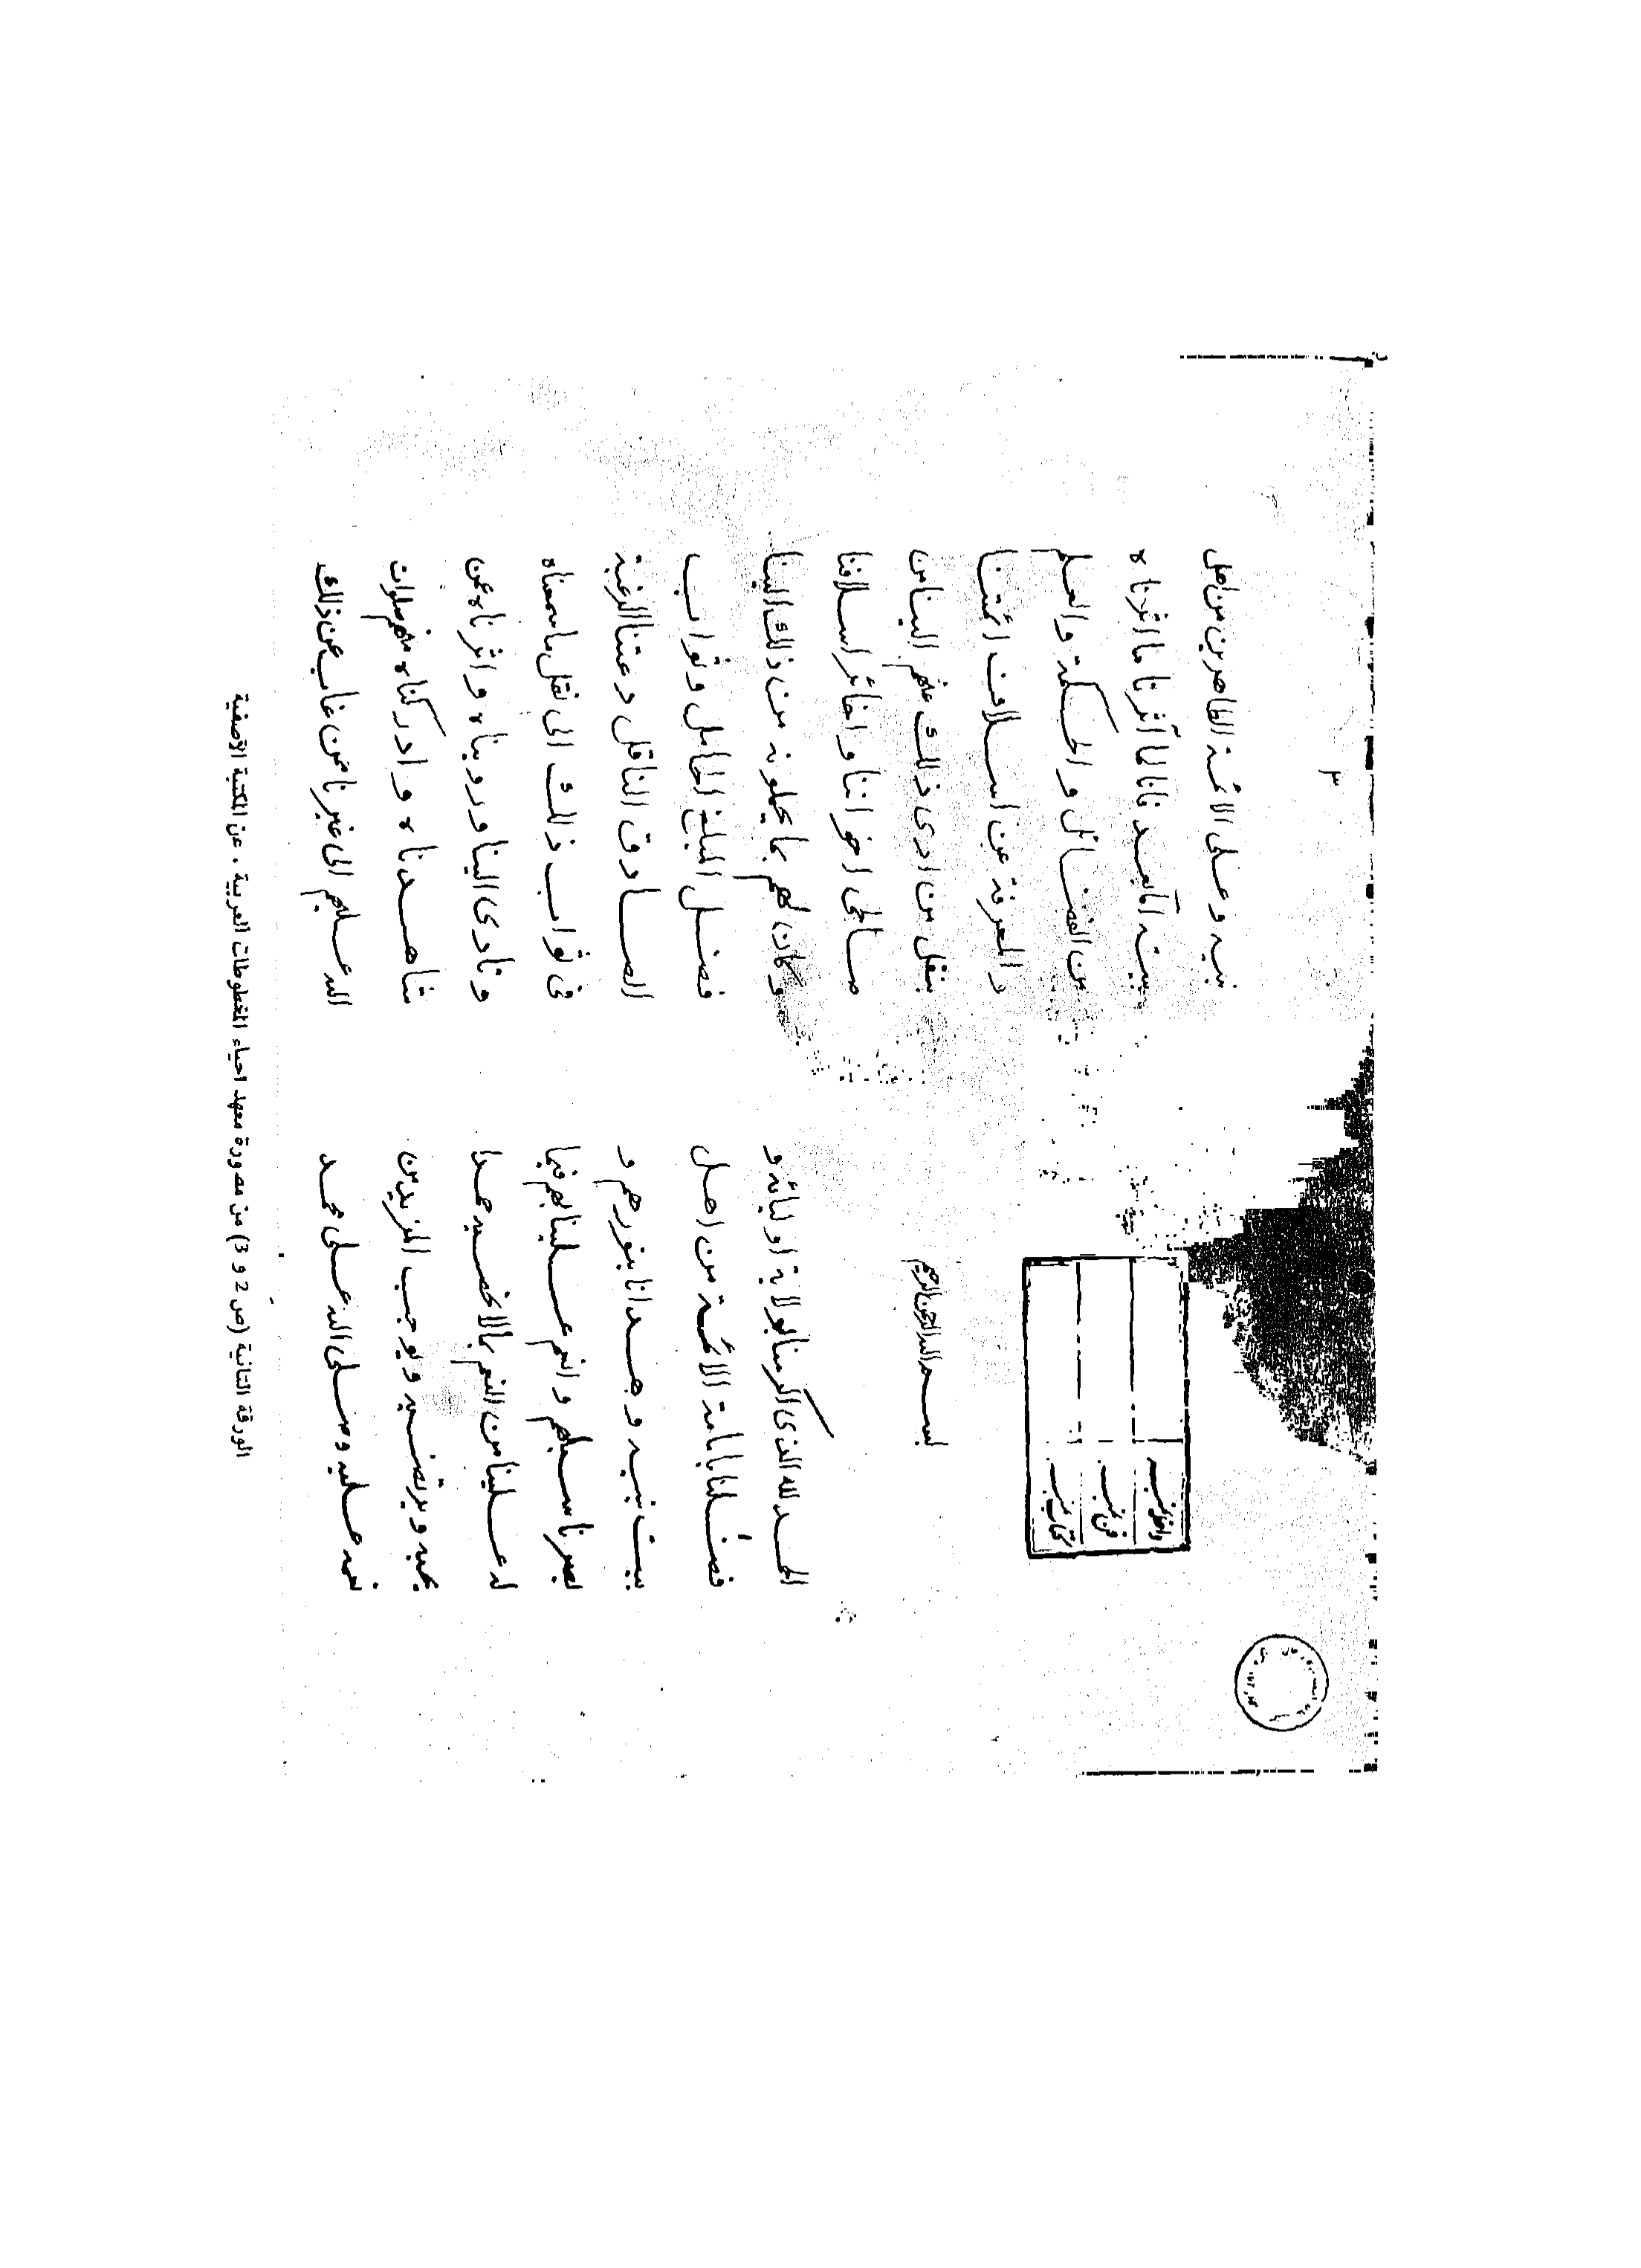 داخلہ نمبر
فن نمبر
كتاب نمبر
بسم الله الرحمن الرحيم
الحمد لله الذى اكرمنا بولاية اوليائه و
فضلنا بامامة الائمة من اهل
بيت نبيه وهدانا بنورهم و
بصرنا سبيلهم وانعم علينا بهم فيما
له علينا من النعم بما لا نحصيه حمدا
يحبه ويرتضيه ويوجب المزيد من
نعمه عليه وصلى الله على محمد
٣
نبيه وعلى الائمة الطاهرين من اهل
بيته اما بعد فانا لما آثرنا ما اثرناه
من الفضائل والحكمة والعلم
والمعرفة عن اسلاف ائمتنا
بنقل من ادى ذلك عنهم الينا من
صالحى اخواننا واخائر اسلافنا
وكان لهم بما يحملونه من ذلك الينا
فضل المبلغ الحامل وثواب
الصادق الناقل دعتنا الرغبة
فى ثواب ذلك الى نقل ما سمعناه
وتادى الينا ورويناه واثرناه عن
شاهدناه وادركناه منهم صلوات
الله عليهم الى غيرنا ممن غاب عن ذلك
الورقة الثانية (ص 2 و 3) من مصورة معهد احياء المخطوطات العربية ، عن المكتبة الآصفية